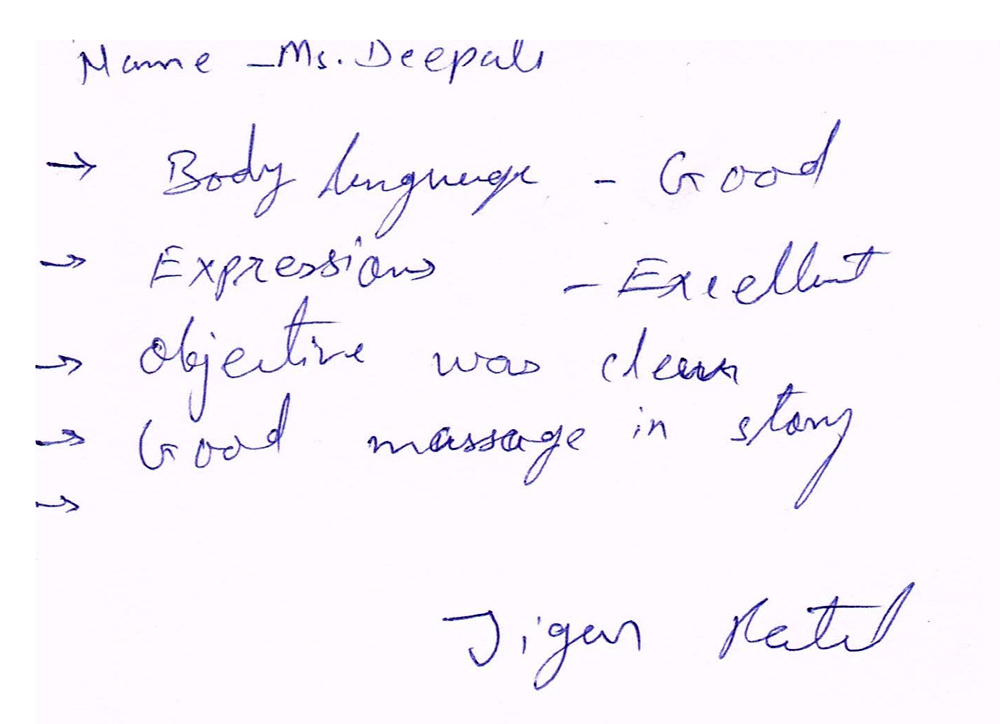 Name - Ms. Deepali
→ Body language - Good
→ Expressions - Excellent
→ Objective was clear
→ Good massage in story
→
Jigar Patel